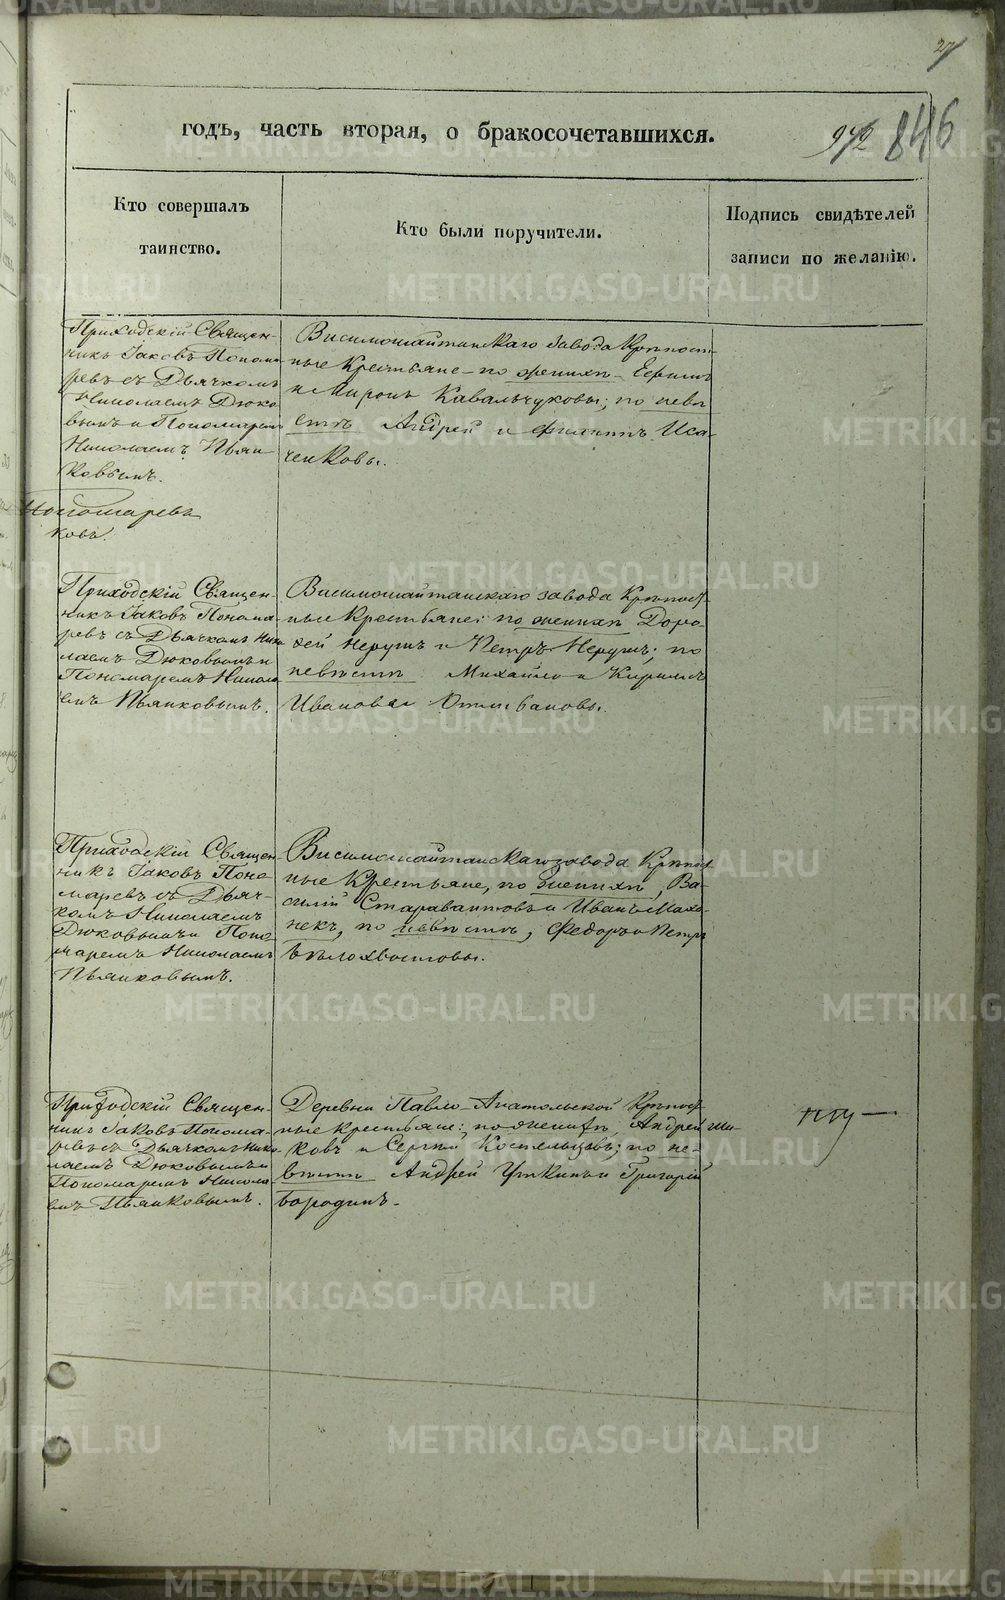 27
годъ, часть вторая, о бракосочетавшихся.
972 846
Кто совершалъ
таинство.
Кто были поручители.
Подпись свидѣтелей
записи по желанію.
Приходскій Священ-
никъ Іаковъ Понома-
ревъ съ Дьячкомъ
Николаемъ Дюко-
вымъ и Пономаремъ
Николаемъ Пьян-
ковымъ.
Пономаревъ
ковъ.
Висимошайтанскаго завода Крѣпост-
ные Крестьяне – по женихѣ – Ефимъ
и Миронъ Кавальчуковы; по невѣ-
стѣ Андрей и Филиппъ Иса-
ченковы.
Приходскій Священ-
никъ Іаковъ Понома-
ревъ съ Дьячкомъ Нико-
лаемъ Дюковымъ и
Пономаремъ Никола-
емъ Пьянковымъ.
Висимошайтанскаго завода Крѣпост-
ные Крестьяне: по женихѣ Доро-
фей Нерушъ и Петръ Нерушъ; по
невѣстѣ Михайло и Кирилъ
Ивановы
Приходскій Священ-
никъ Іаковъ Поно-
маревъ съ Дьяч-
комъ Николаемъ
Дюковымъ и Поно-
маремъ Николаемъ
Пьянковымъ.
Висимошайтанскаго завода Крѣпост-
ные Крестьяне, по женихѣ, Ва-
силій и Иванъ Махо-
некъ, по невѣстѣ, Федоръ и Петръ
Бѣлохвостовы.
Приходскій Священ-
никъ Іаковъ Понома-
ревъ съ Дьячкомъ Нико-
лаемъ Дюковымъ и
Пономаремъ Никола-
емъ Пьянковымъ.
Деревни Павло-Анатольской Крѣпост-
ные крестьяне: по женихѣ Андрей Ши-
ковъ и Сергѣй; по не-
вѣстѣ Андрей Уткинъ и Григорій
Бородинъ.
METRIKI.GASO-URAL.RU